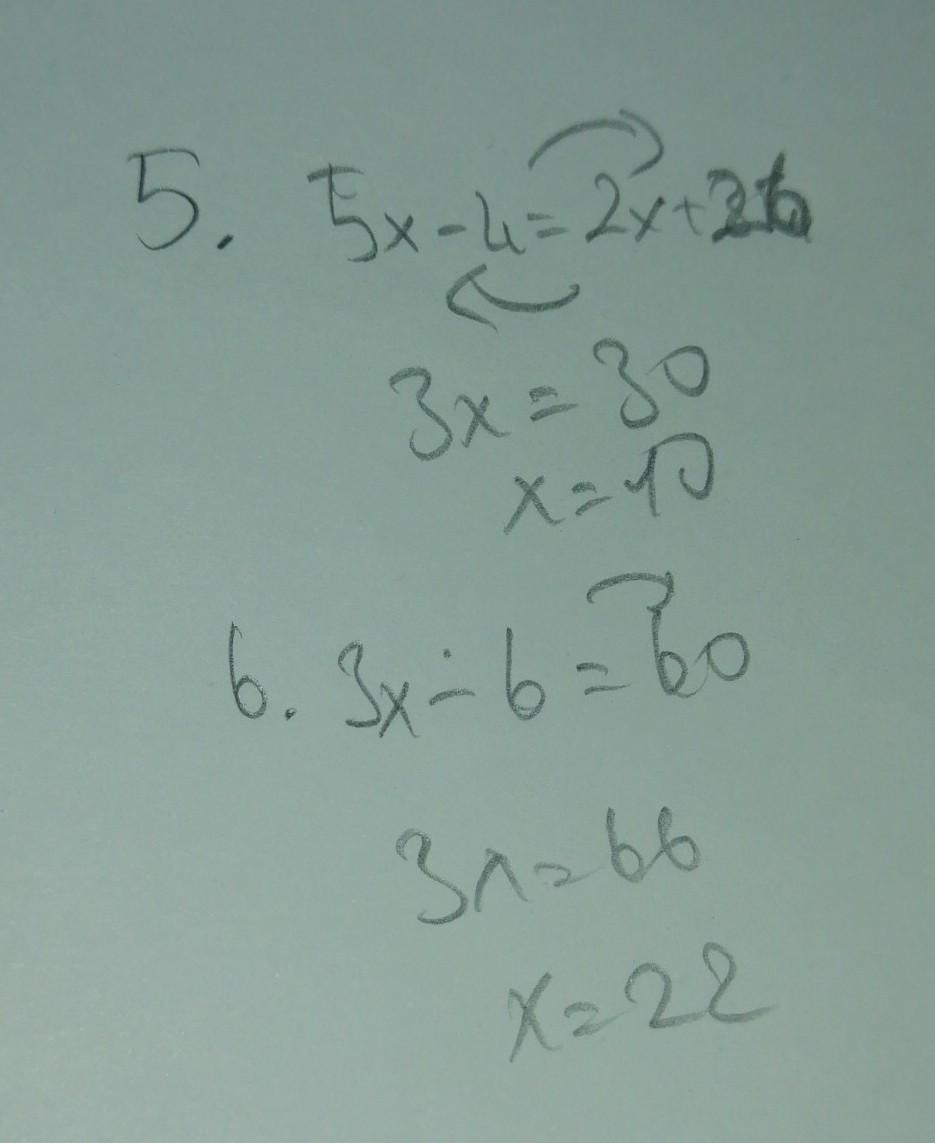 5. 5x-4=2x+26
3x=30
x=10
6. 3x-6=60
3x=66
x=22